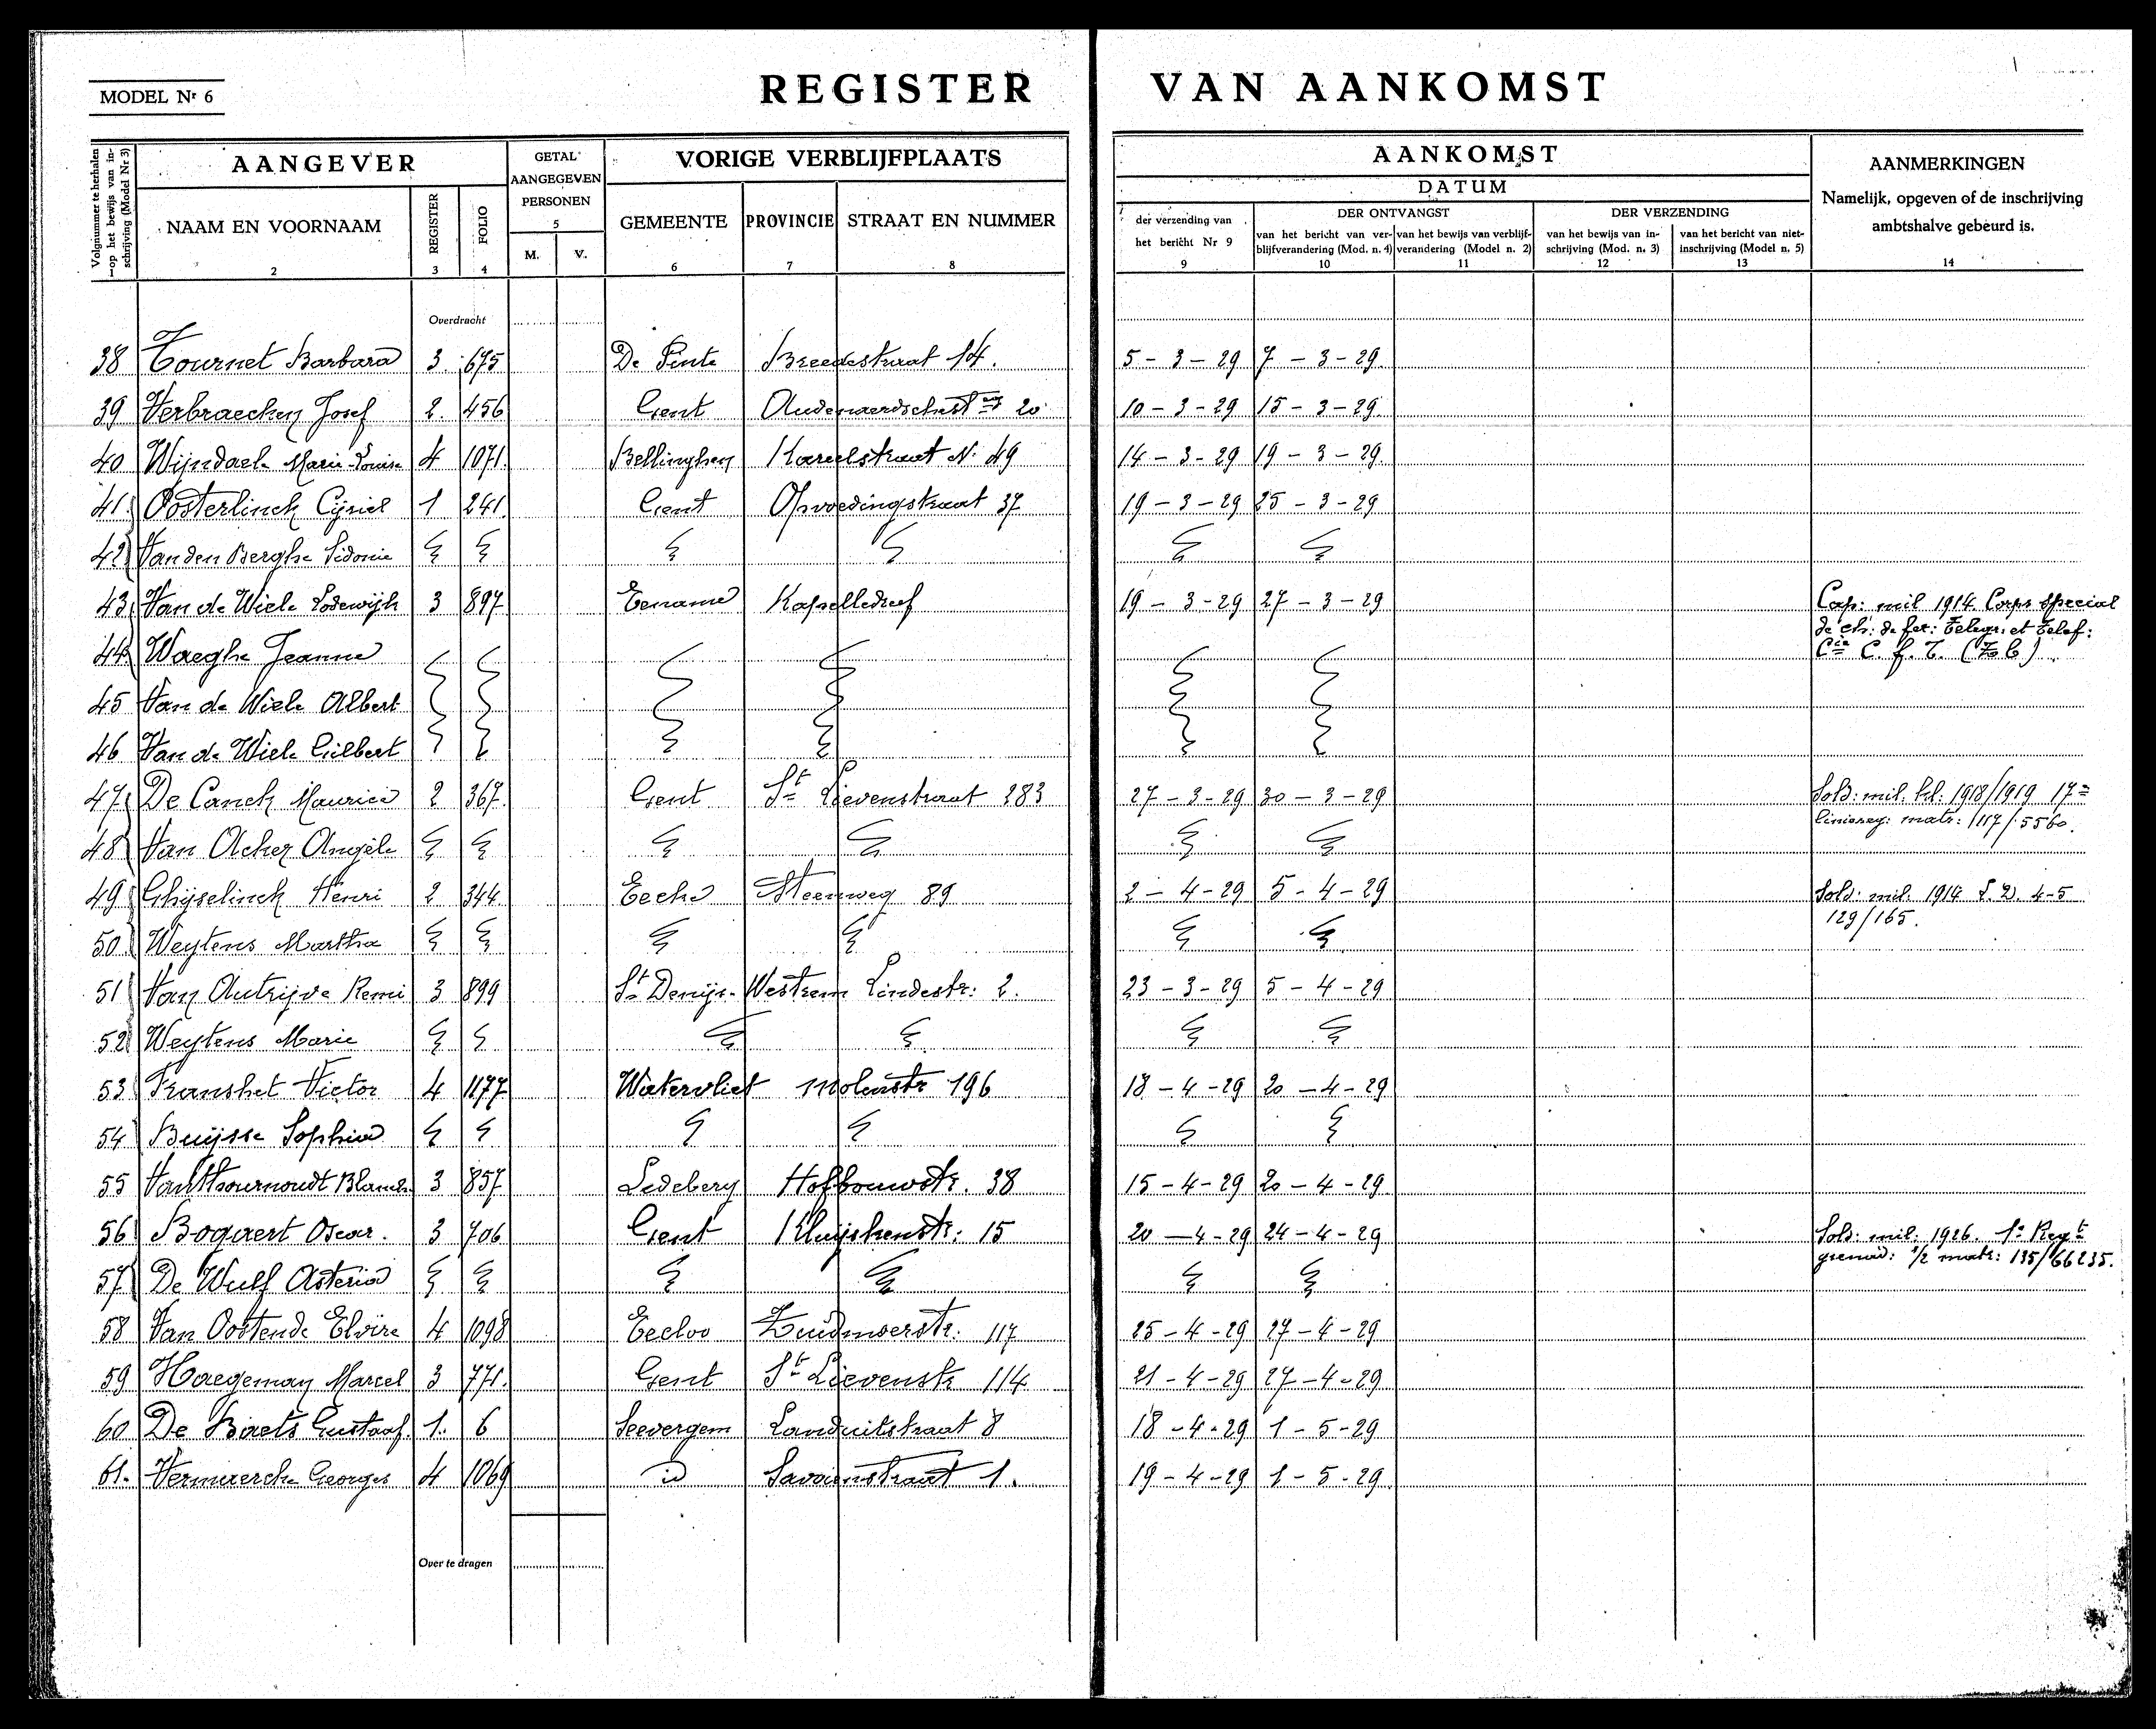 MODEL Nr 6
REGISTER VAN AANKOMST
Volgnummer te herhalen op het bewijs van inschrijving (Model Nr 3)
AANGEVER
GETAL AANGEGEVEN PERSONEN
5
VORIGE VERBLIJFPLAATS
AANKOMST
DATUM
AANMERKINGEN
Namelijk, opgeven of de inschrijving
ambtshalve gebeurd is.
NAAM EN VOORNAAM
REGISTER
FOLIO
M. V.
GEMEENTE PROVINCIE STRAAT EN NUMMER
der verzending van het bericht Nr 9
DER ONTVANGST
van het bericht van verblijfverandering (Mod. n. 4) van het bewijs van verblijfverandering (Model n. 2)
DER VERZENDING
van het bewijs van inschrijving (Mod. n. 3) van het bericht van niet-inschrijving (Model n. 5)
1 2 3 4 6 7 8 9 10 11 12 13 14
Overdracht
38 Tournet Barbara 3. 675 De Pinte Breedestraat 14. 5-3-29 7-3-29
39 Verbraecken Josef 2. 456 Gent 20 10-3-29 15-3-29
40 Wijndaele Marie-Louise 4 1071. Bellinghen Kareelstraat N. 49 14-3-29 19-3-29
41 Oosterlinck Cyriel 1 241. Gent Opvoedingstraat 37 19-3-29 25-3-29
42 Van den Berghe Sidonie
43 Van de Wiele Lodewijk 3 897 Eename Kapelledreef 19-3-29 27-3-29 Cap: mil 1914 Corps special
de ch: de fer: Telegr: et Telef:
Cie C. f. T.
44 Waeghe Jeanne
45 Van de Wiele Albert
46 Van de Wiele Gilbert
47 De Canck Maurice 2 367. Gent St Lievenstraat 283 27-3-29 30-3-29 Sold: mil. kl: 1918/1919 17e
liniereg: matr: 117/5560.
48 Van Acker Angèle
49 Ghijselinck Henri 2 344 Eecke Steenweg 89 2-4-29 5-4-29 Sold: mil: 1914 4-5
129/165.
50 Weytens Martha
51 Van Autrijve Remi 3 899 St Denijs-Westrem Lindestr: 2. 23-3-29 5-4-29
52 Weytens Marie
53 Victor 4 1177 Watervliet Molenstr 196 18-4-29 20-4-29
54 Buijsse Sophia
55 Van Thournoudt Blanche 3 857 Ledeberg Hofbouwstr. 38 15-4-29 20-4-29
56 Bogaert Oscar. 3 706 Gent Kluyskenstr: 15 20-4-29 24-4-29 Sold: mil: 1926. 1e Regt
grenad: 1/2 matr: 135/66235.
57 De Wulf Asteria
58 Van Oostende Elvire 4 1098 Eecloo Zuidmoerstr: 117 25-4-29 27-4-29
59 Haegeman Marcel 3 771. Gent St Lievenstr 114 21-4-29 27-4-29
60 De Baets Gustaaf 1. 6 Seevergem Landuitstraat 8 18-4-29 1-5-29
61. Vermeersch Georges 4 1069 id Savaanstraat 1. 19-4-29 1-5-29
Over te dragen